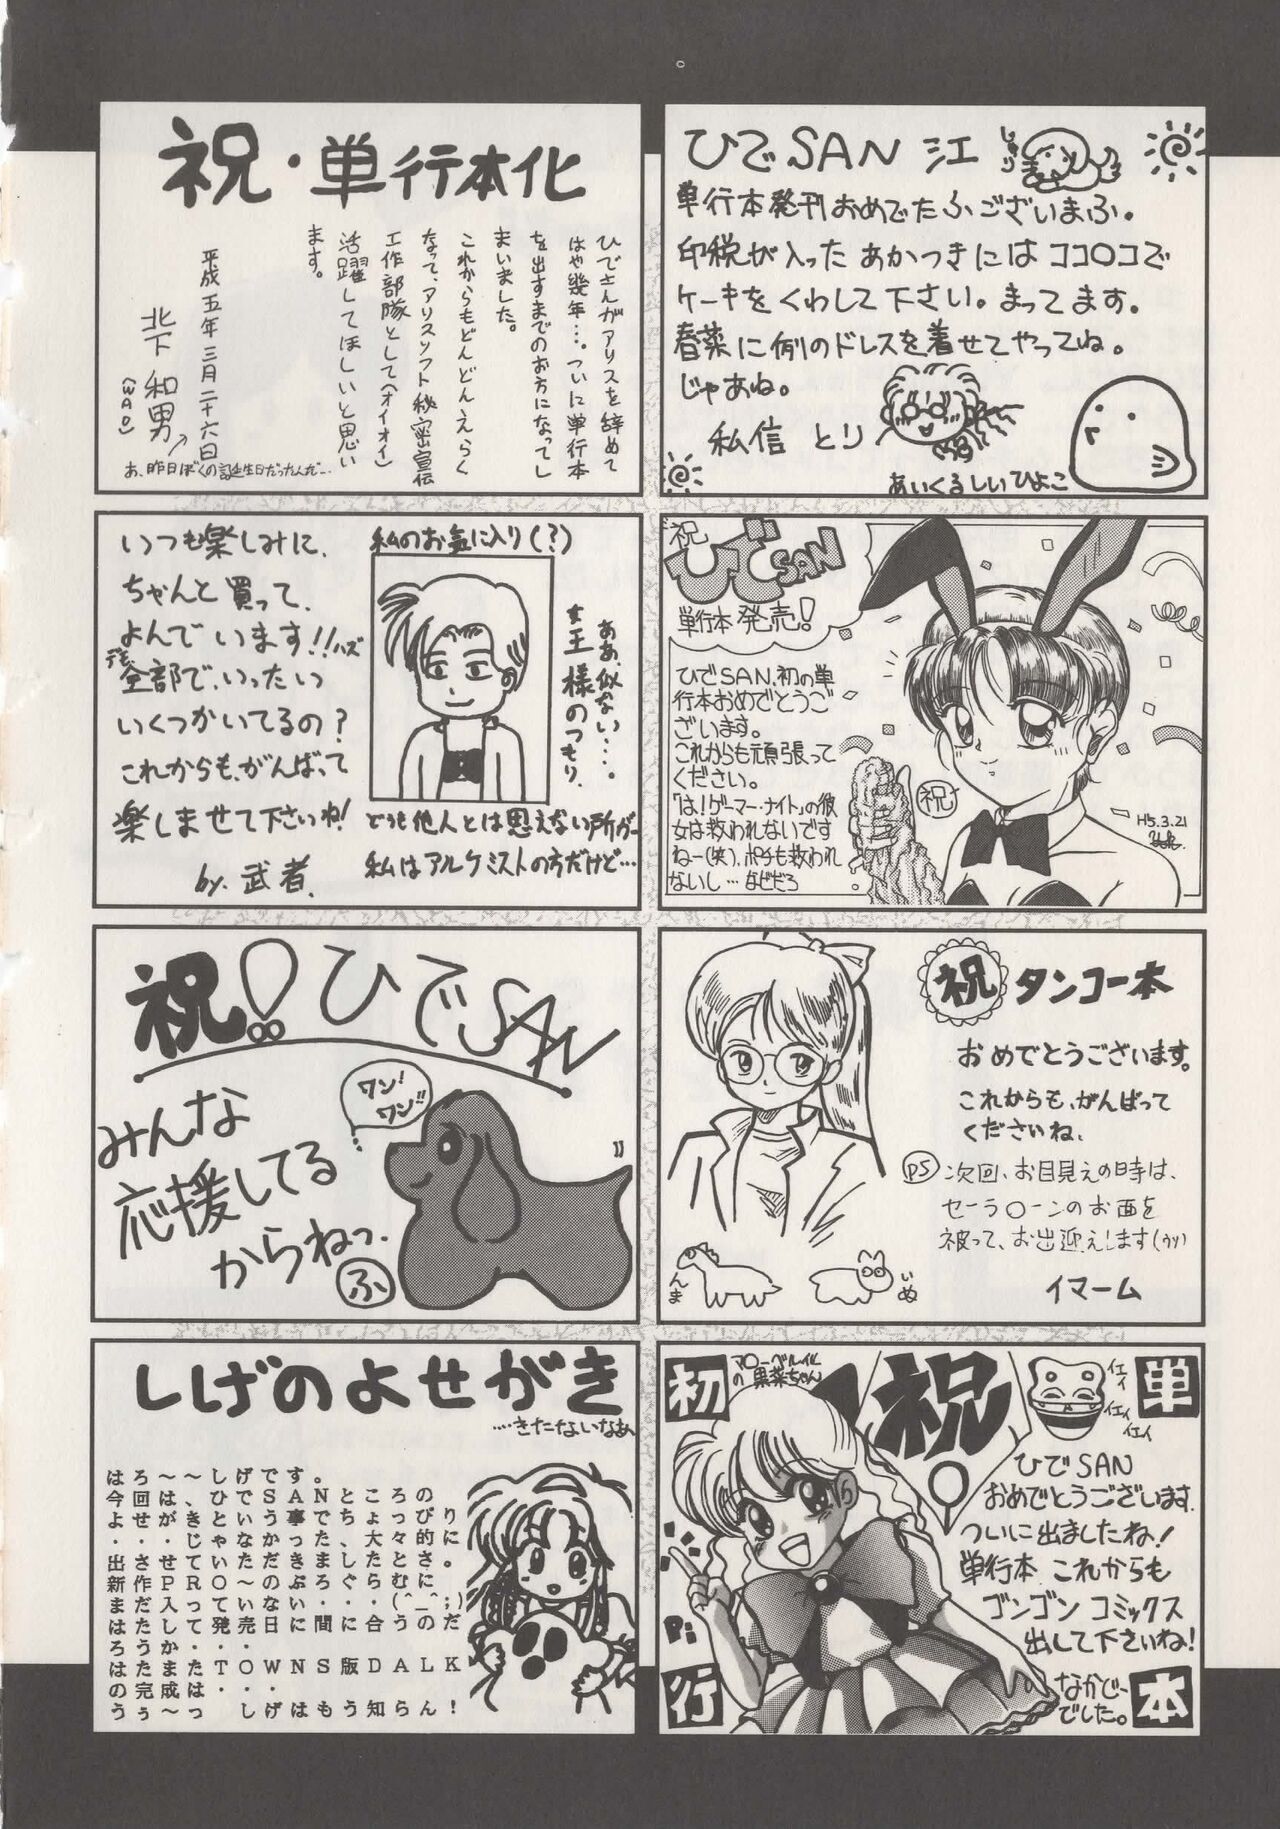 ひでSAN 江
単行本発刊おめでたふございまふ。
印税が入ったあかつきにはココ〇コで
ケーキをくわして下さい。まってます。
春菜に例のドレスを着せてやってね。
じゃあね。
私信 とり
あいくるしいひよこ
祝・単行本化
ひでさんがアリスを辞めて
はや幾年…。ついに単行本
を出すまでのお方になってし
まいました。
これからもどんどんえらく
なって、アリスソフト秘密宣伝
工作部隊として(オイオイ)
活躍してほしいと思い
ます。
平成五年三月二十六日
北下 和男
(WAO)
あ、昨日ぼくの誕生日だったんだ…
祝
ひでSAN
単行本発売!
ひでSAN、初の単
行本おめでとうご
ざいます。
これからも頑張って
ください。
「は!ゲーマー・ナイト」の彼
女は救われないです
ねー(笑)、ポチも救われ
ないし…などだろ
祝
H5.3.21
いつも楽しみに、
ちゃんと買って、
よんでいます!!ハズ
デモ全部で、いったい
いくつかいてるの?
これからも、がんばって
楽しませて下さいね!
by. 武者.
私のお気に入り(?)
ああ、似ない…。
女王様のつもり.
どうも他人とは思えない所が…
私はアルケミストの方だけど…
祝 タンコー本
おめでとうございます。
これからも、がんばって
くださいね、
PS 次回、お目見えの時は、
セーラ〇ーンのお面を
被って、お出迎えします(ウソ)
イマーム
んま
いぬ
祝!ひでSAN
みんな
応援してる
からねっ.
ふ
ワン!
ワン!!
初
単
行
本
祝
マローベルイルの果菜ちゃん
イェイ
イェイ
イェイ
ひでSAN
おめでとうございます.
ついに出ましたね!
単行本 これからも
ゴンゴン コミックス
出して下さいね!
なかじー
でした。
Pi
しげのよせがき
……きたないなぁ
はろ〜〜しげです。
今回は、ひでSANところの
よせがきというか事でちょっぴり
・・・じゃないなうった、大々的に
出させていただきましたとさ。
新作PROだのぶろぐらむに
まだ入って〜いない・・・(^_^;)
はたしって発売日に間に合うのだ
ろうか・・・
はたまたTOWNS版DALK
の完成は・・・
うぅ〜っ しげはもう知らん!